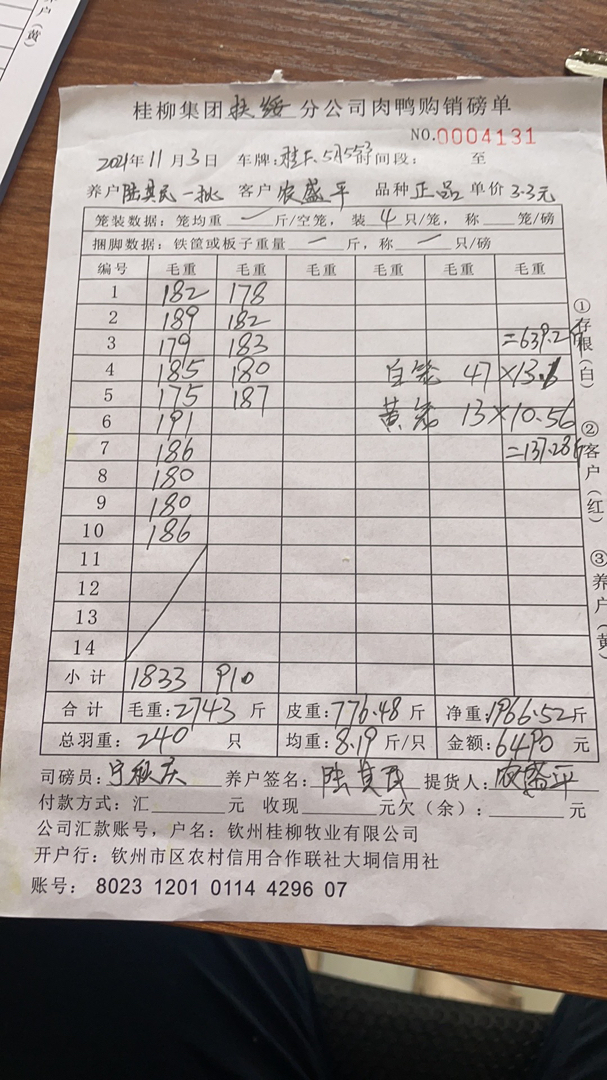 户（黄）
桂柳集团扶绥分公司肉鸭购销磅单
NO.0004131
2021年11月3日 车牌： 时间段： 至
养户陆其民一批 客户农盛平 品种正品 单价3.3元
笼装数据：笼均重 一 斤/空笼，装 4 只/笼，称 笼/磅
捆脚数据：铁筐或板子重量 一 斤，称 一 只/磅
编号 毛重 毛重 毛重 毛重 毛重 毛重
1 182 178
2 189 182
3 179 183 =639.2斤
4 185 180 白笼 47×13.6
5 175 187 黄笼 13×10.56
6 191
7 186 =137.28斤
8 180
9 180
10 186
11
12
13
14
小计 1833 910
合计 毛重:2743斤 皮重:776.48斤 净重:1966.52斤
总羽重：240 只 均重:8.19斤/只 金额:6490元
司磅员： 养户签名：陆其民 提货人：农盛平
付款方式：汇 元 收现 元欠（余）： 元
公司汇款账号，户名：钦州桂柳牧业有限公司
开户行：钦州市区农村信用合作联社大垌信用社
账号： 8023 1201 0114 4296 07
①存根（白）
②客户（红）
③养户（黄）